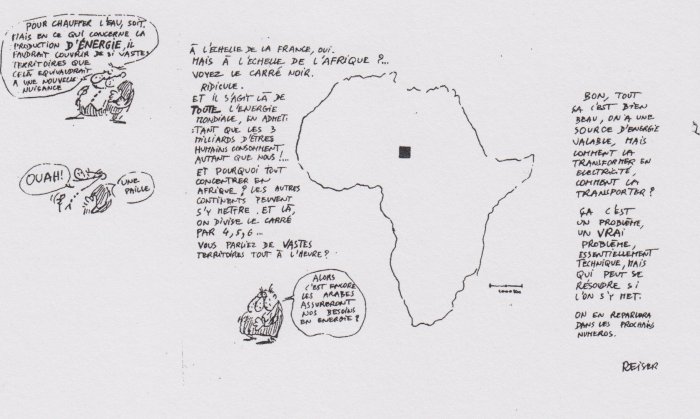 POUR CHAUFFER L'EAU, SOIT.
MAIS EN CE QUI CONCERNE LA
PRODUCTION D'ÉNERGIE, IL
FAUDRAIT COUVRIR DE SI VASTES
TERRITOIRES QUE
CELÀ EQUIVAUDRAIT
A UNE NOUVELLE
NUISANCE
OUAH!
UNE
PAILLE
À L'ÉCHELLE DE LA FRANCE, OUI.
MAIS À L'ÉCHELLE DE L'AFRIQUE ?...
VOYEZ LE CARRÉ NOIR.
RIDICULE.
ET IL S'AGIT LÀ DE
TOUTE L'ENERGIE
MONDIALE, EN ADMET-
TANT QUE LES 3
MILLIARDS D'ÊTRES
HUMAINS CONSOMMENT
AUTANT QUE NOUS !...
ET POURQUOI TOUT
CONCENTRER EN
AFRIQUE ? LES AUTRES
CONTINENTS PEUVENT
S'Y METTRE. ET LÀ,
ON DIVISE LE CARRÉ
PAR 4, 5, 6...
VOUS PARLIEZ DE VASTES
TERRITOIRES TOUT À L'HEURE ?
ALORS
C'EST ENCORE
LES ARABES
ASSURERONT
NOS BESOINS
EN ENERGIE ?
BON, TOUT
ÇA C'EST BIEN
BEAU, ON A UNE
SOURCE D'ENERGIE
VALABLE, MAIS
COMMENT LA
TRANSFORMER EN
ELECTRICITÉ,
COMMENT LA
TRANSPORTER ?
ÇA C'EST
UN PROBLÈME,
UN VRAI
PROBLÈME,
ESSENTIELLEMENT
TECHNIQUE, MAIS
QUI PEUT SE
RÉSOUDRE SI
L'ON S'Y MET.
ON EN REPARLERA
DANS LES PROCHAINS
NUMEROS.
REISER